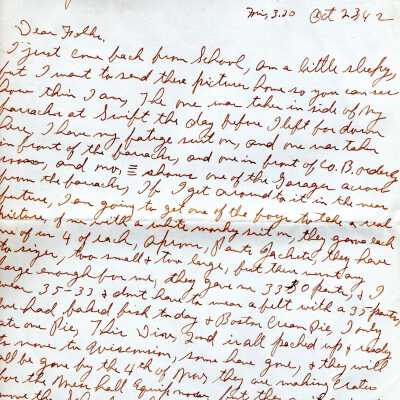 Fri, 3.30 Oct 23/42
Dear Folks,
I just come back from School, am a little sleepy,
but I want to send these pictures home so you can see
how thin I am, The one was take in side of My
barracks at Swift the day before I left for down
here, I have my fatige suit on, and one was taken
in front of the barracks, and one in front of Co. B, orderly
room, and no, shows one of the Garages across
from the barracks, If I get around to it in the near
future, I am going to get one of the boys to take a real
picture of me with a white monky suit on, they gave each
us 4 of each, Aprons, Pants, Jackets, they have
two sizes, two small & two large, but there went any
large enough for me, they gave me 33 30 pants, & I
wear 35-33 & don't have to wear a belt with a 35 pants,
we had baked fish today & Boston Cream Pie, I only
ate one Pie, This Div, 2nd is all packed up & ready
to move to Wisconsin, some have gone, & they will
all be gone by the 4th of Nov, they are making crates
for the Mess hall Equip now, but they